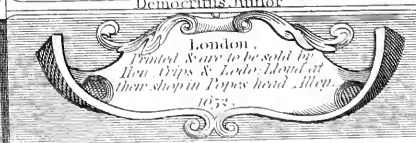 Democritus Junior
London.
Printed & are to be sold by
Hen. Crips & Lodo: Lloyd at
their shop in Popes head Alley.
1652.